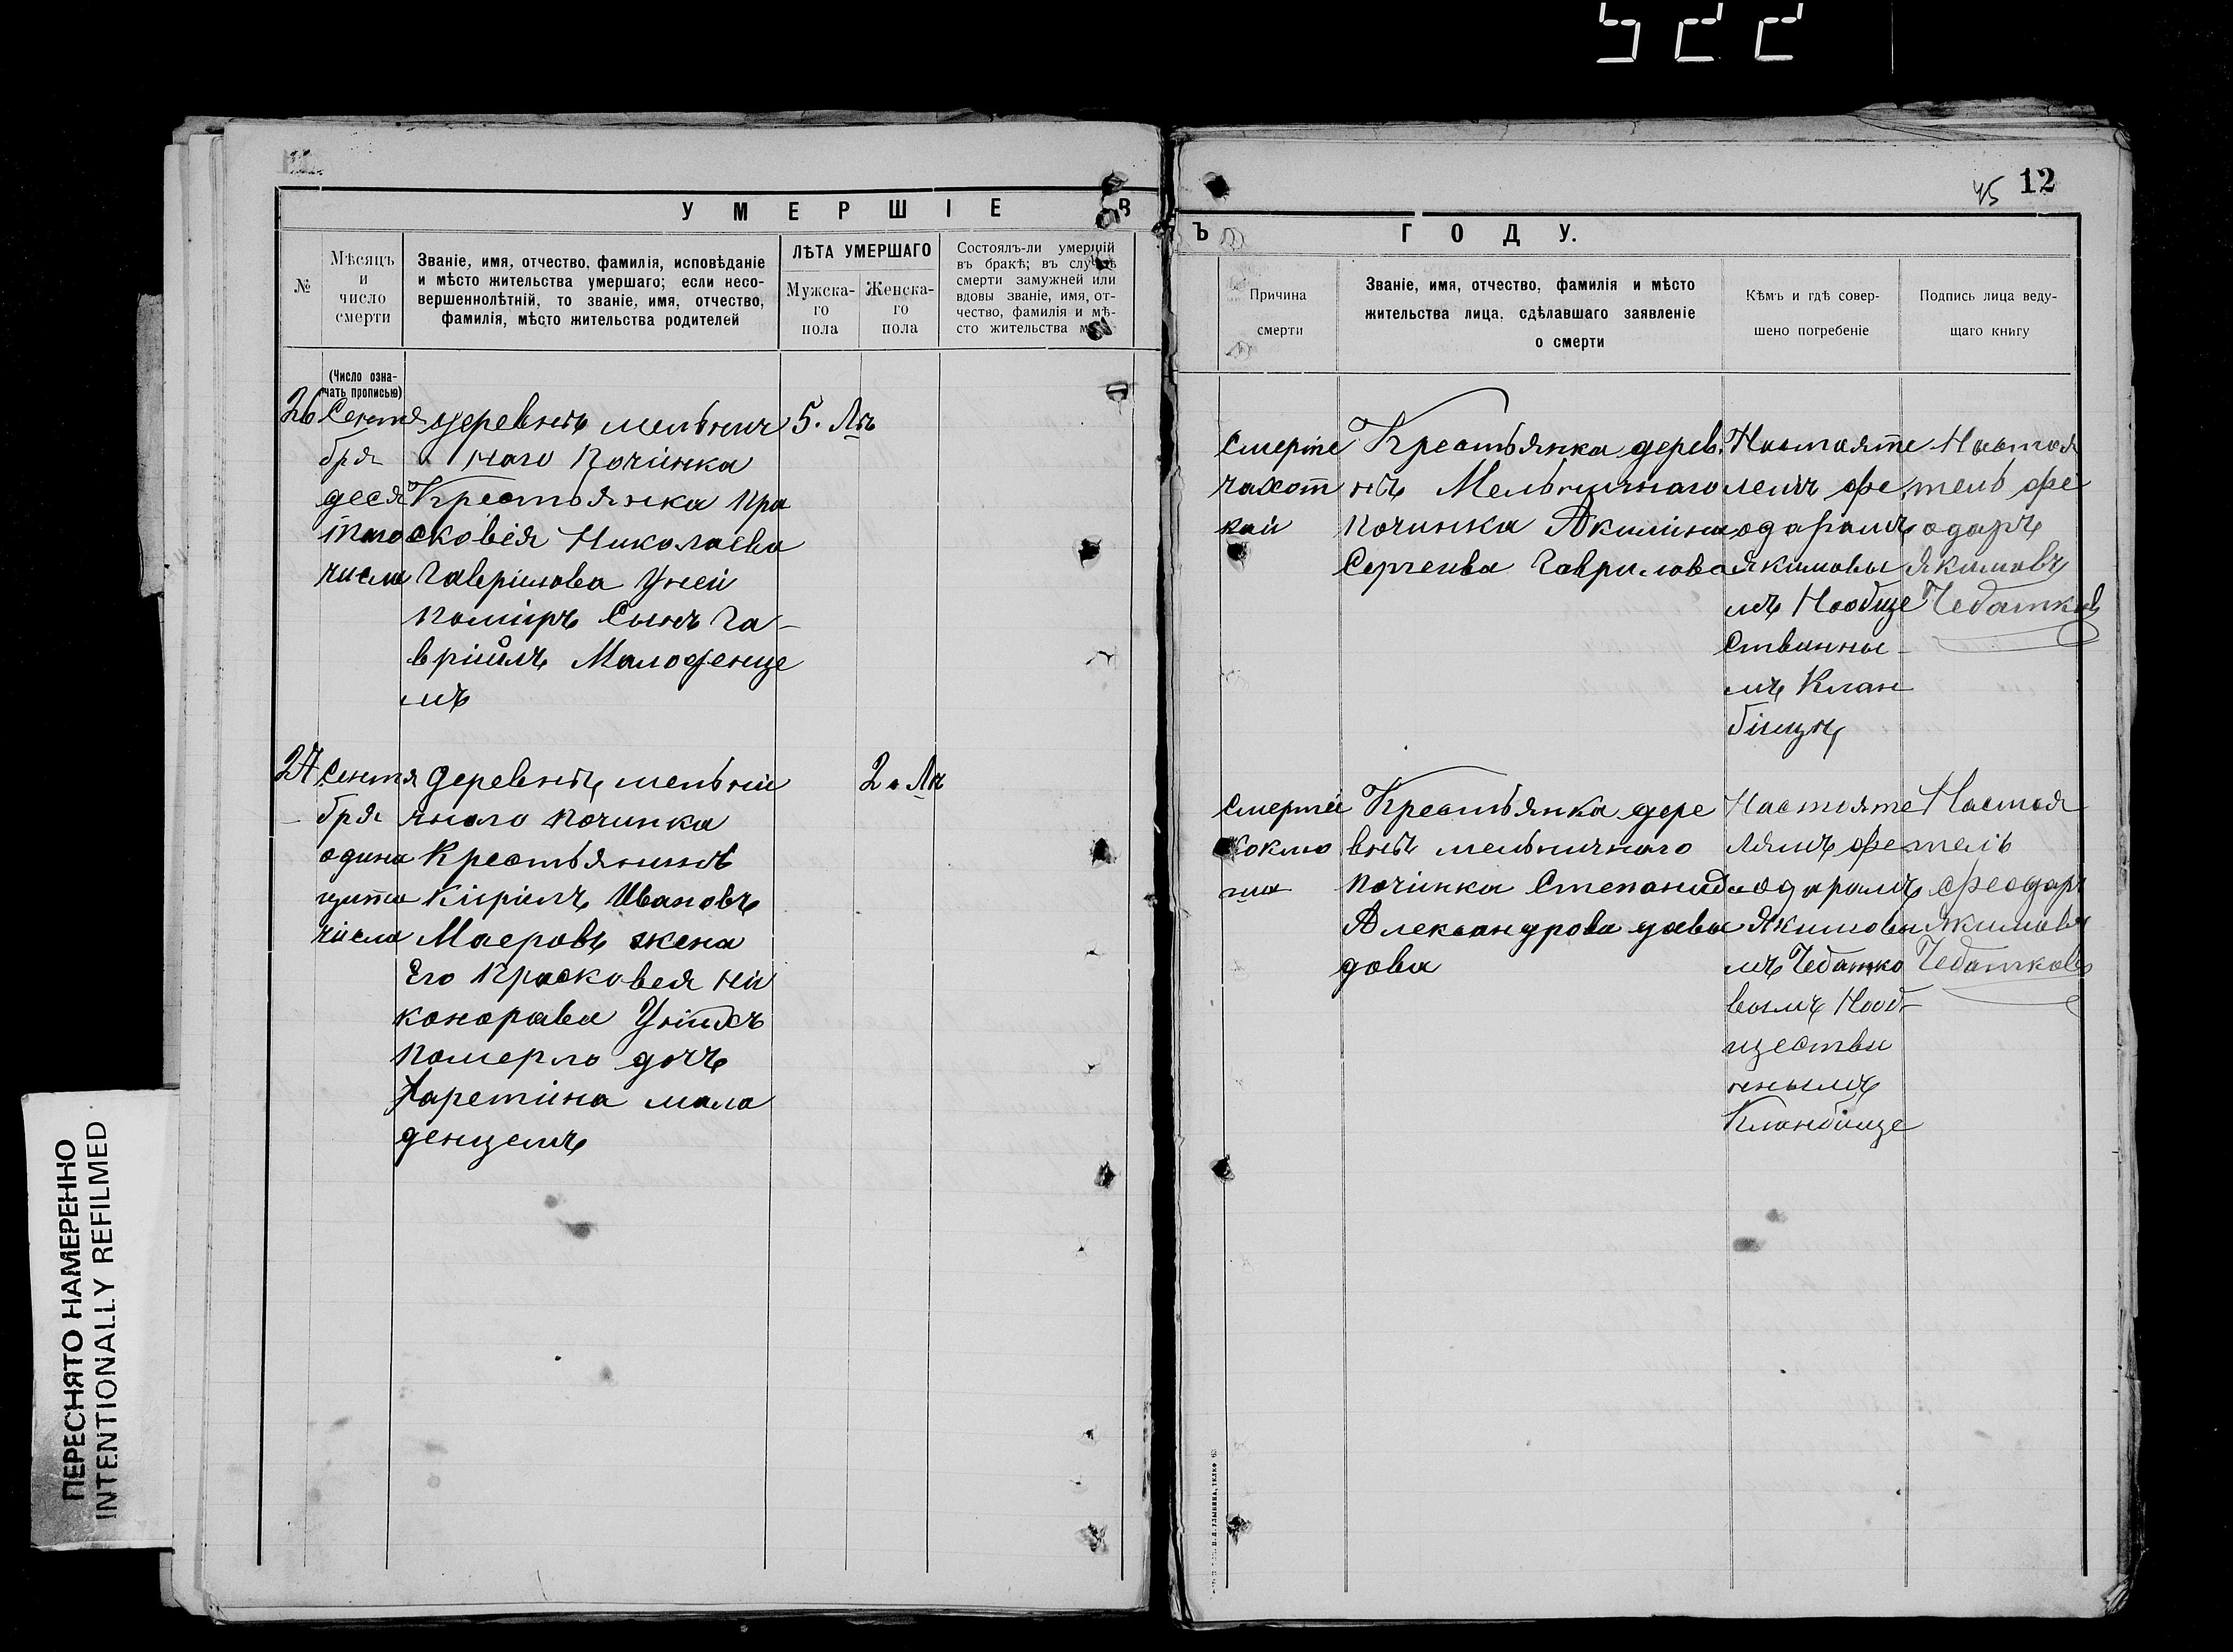 522
45 12
УМЕРШІЕ В
Ъ ГОДУ.
№
Мѣсяцъ
и
число
смерти
Званіе, имя, отчество, фамилія, исповѣданіе
и мѣсто жительства умершаго; если несо-
вершеннолѣтній, то званіе, имя, отчество,
фамилія, мѣсто жительства родителей
ЛѢТА УМЕРШАГО
Мужска-
го
пола
Женска-
го
пола
Состоялъ-ли умершій
въ бракѣ; въ случаѣ
смерти замужней или
вдовы званіе, имя, от-
чество, фамилія и мѣ-
сто жительства
Причина
смерти
Званіе, имя, отчество, фамилія и мѣсто
жительства лица, сдѣлавшаго заявленіе
о смерти
Кѣмъ и гдѣ совер-
шено погребеніе
Подпись лица веду-
щаго книгу
(Число озна-
чать прописью)
26
Сентя
бря
деся
таго
числа
деревнѣ мельнич
наго Починка
Крестьянка пра
сковія Николаева
Гаврилова Уней
помиръ Сынъ Га-
вріилъ Малоденце
мъ
5. Лѣ
Смерте
чахот
кай
Крестьянка дерев.
нѣ Мельничнаго
починка Акилина
Сергеива Гаврилова
Настояте
лемъ фе
одарамъ
Якимовы
мъ Нообще
ственны-
мъ Клан
бищи
Настоя
тель фе
одаръ
Якимовъ
Чебатковъ
27
Сентя
бря
одина
цата
числа
Деревнѣ мельни
чнаго починка
Крестьянинъ
Кирилъ Ивановъ
Маеровъ жена
Его Прасковея Ни
конорава Унихъ
померло дочъ
Харетина мала
денцемъ
2. Лѣ
Смертей
Коклю
ша
Крестьянка дере
внѣ мельничнаго
Починка Степанида
Александрова давы
дова
Настояте
лямъ фе
одарамъ
Якимовы
мъ Чебатко
вымъ Нооб-
ществи
ннымъ
Кланбище
Настоя
тель
феодаръ
Якимовъ
Чебатковъ
ПЕРЕСНЯТО НАМЕРЕННО
INTENTIONALLY REFILMED